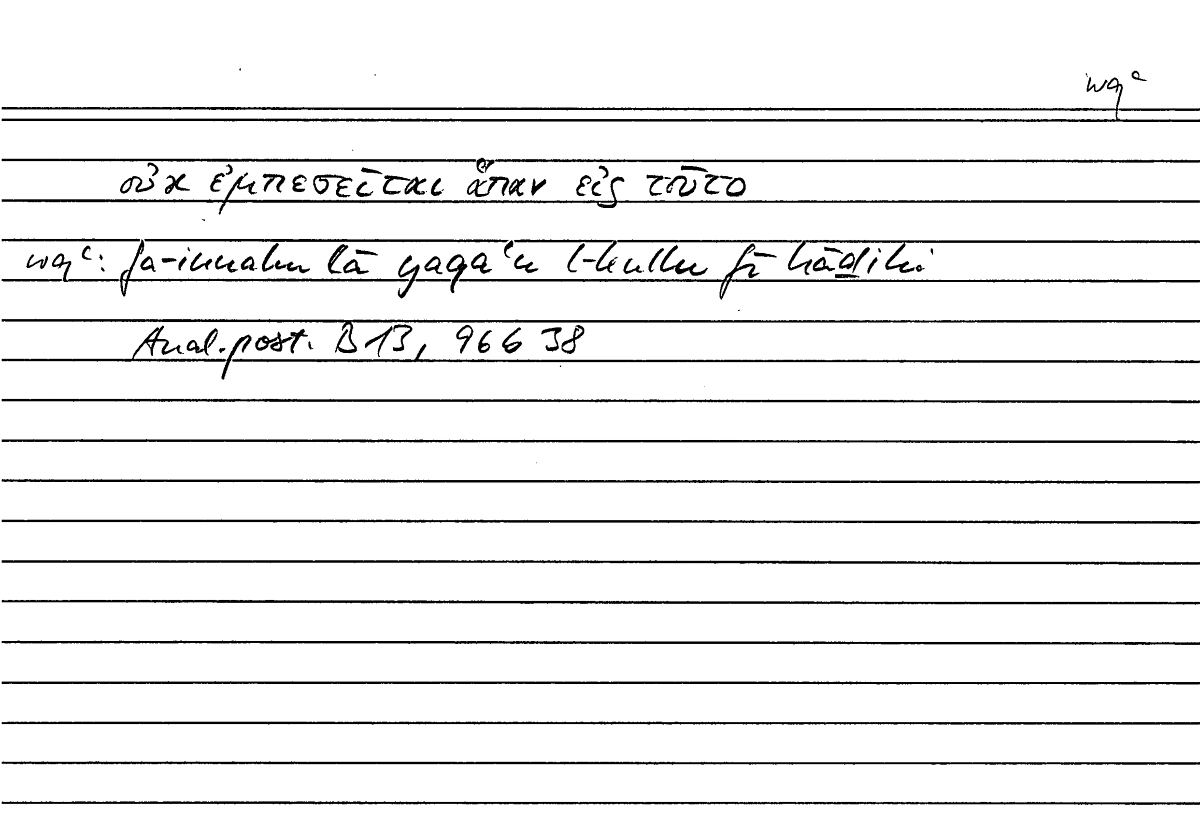 wqʿ
οὐκ ἐμπεσεῖται ἅπαν εἰς τοῦτο
wqʿ: fa-innahu lā yaqaʿu l-kullu fī hāḏihi
Anal. post. B 13, 96b 38